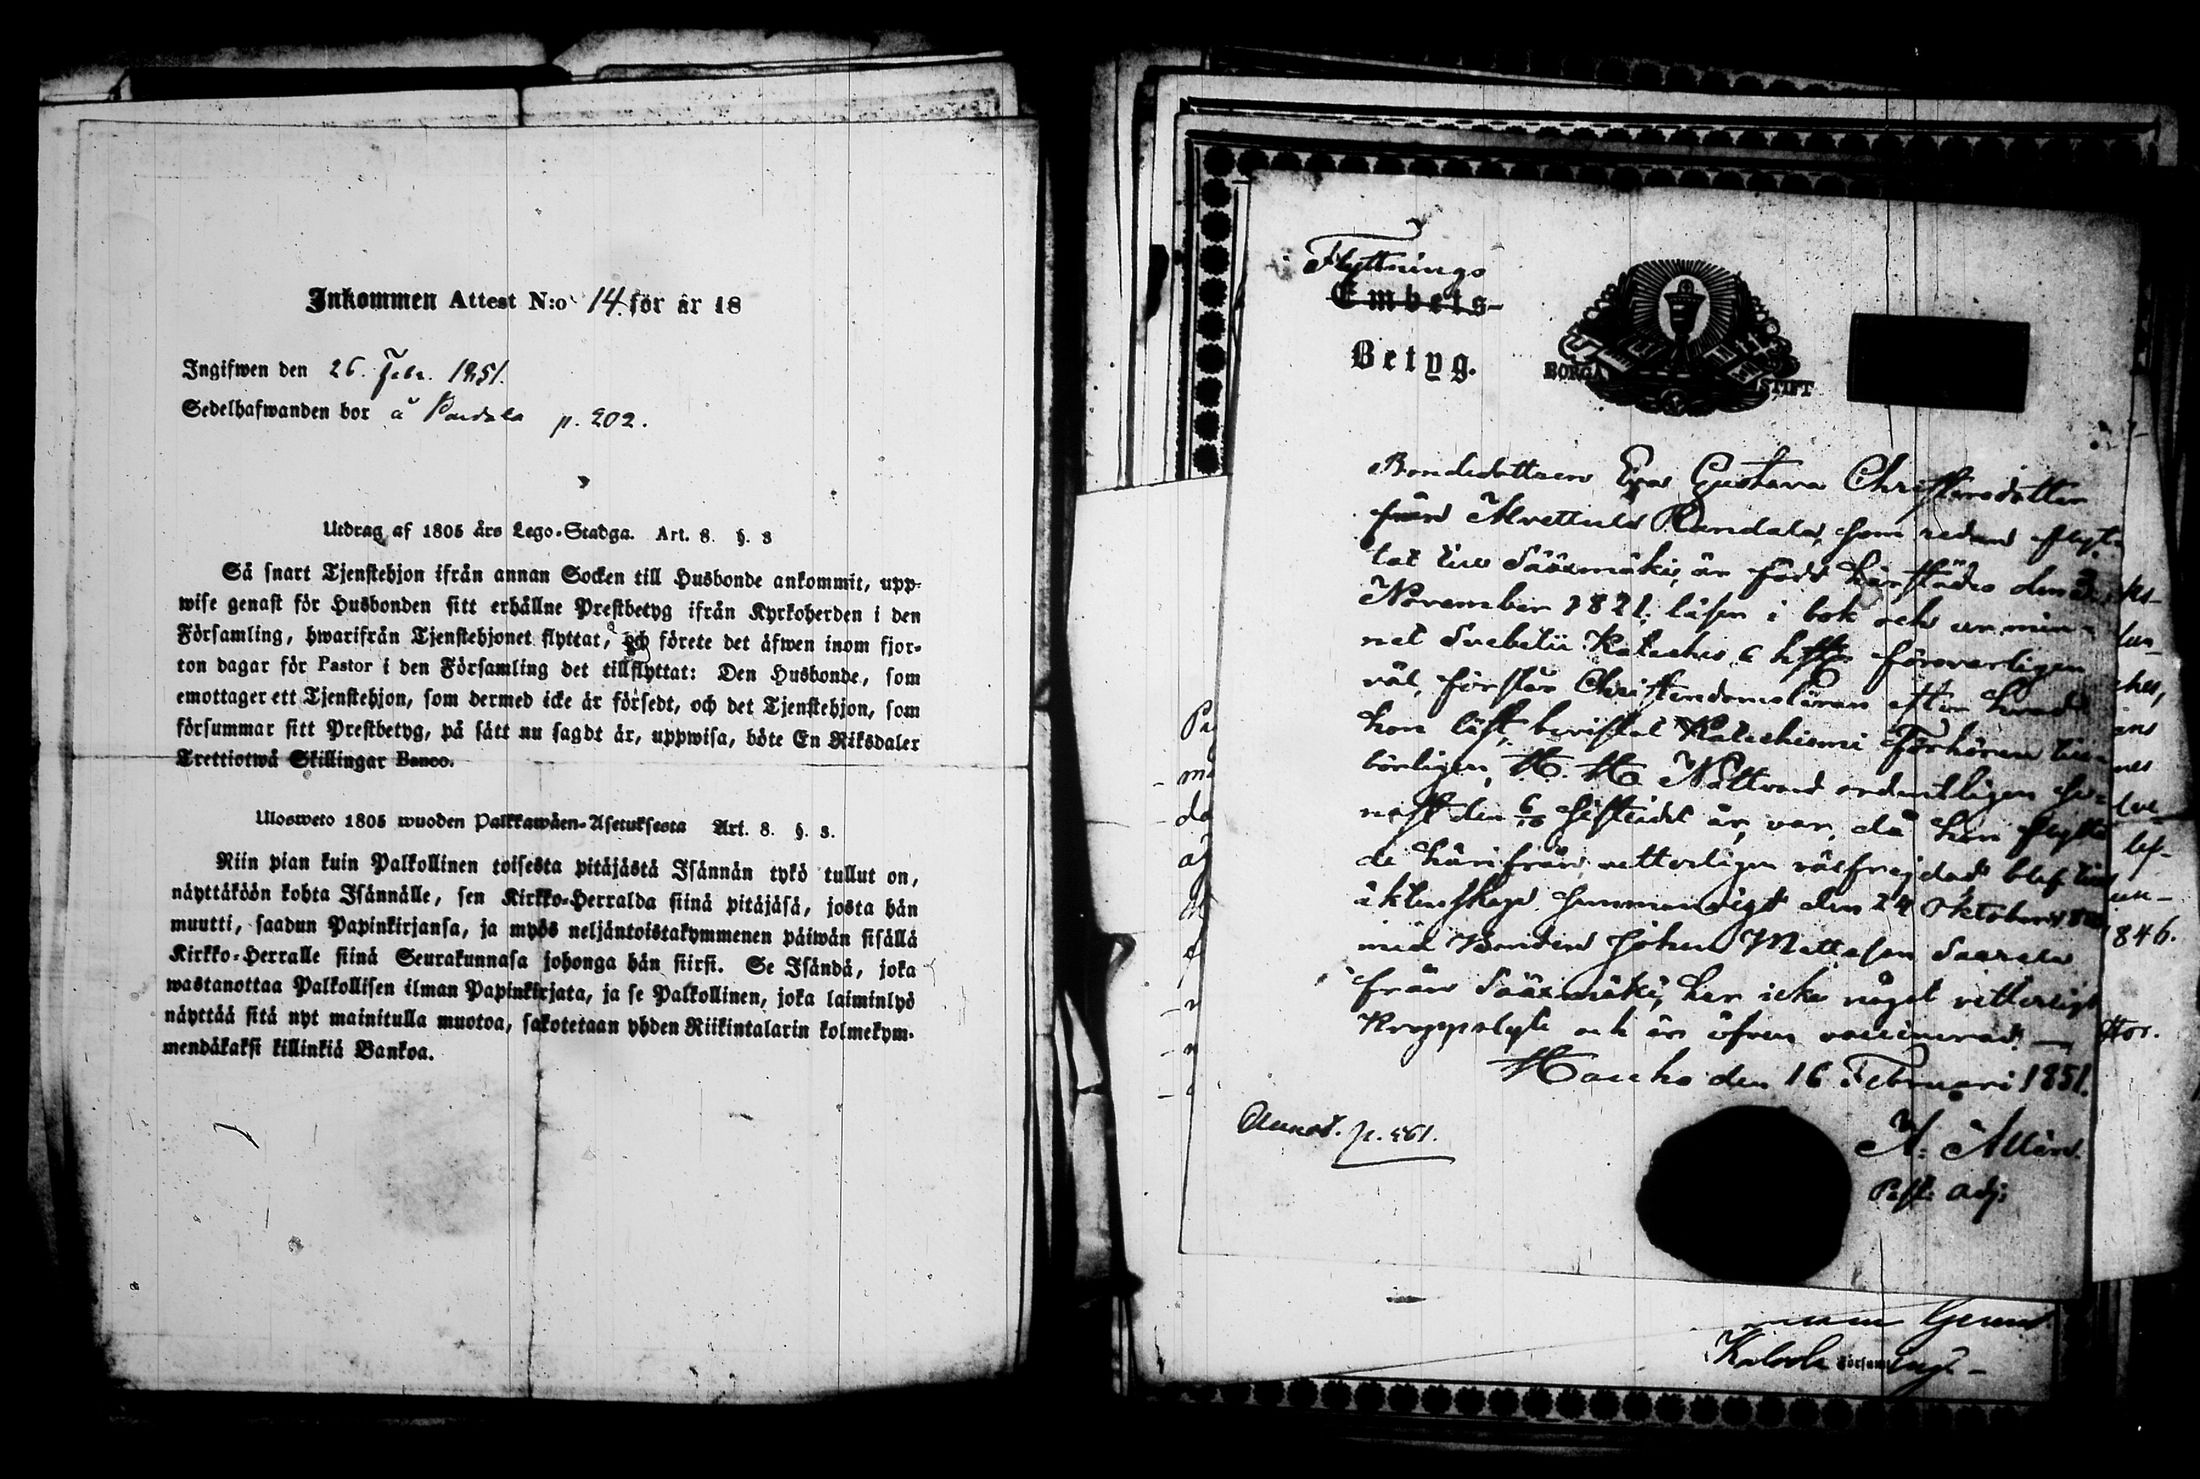 Inkommen Attest N:o 14. för år 18
Ingifwen den 26. Febr. 1851.
Sedelhafwanden bor å p. 202.
Utdrag af 1805 års Lego-Stadga. Art. 8. §. 3
Så snart Tjenstehjon ifrån annan Socken till Husbonde ankommit, upp-
wise genast för Husbonden sitt erhållne Prestbetyg ifrån Kyrkoherden i den
Församling, hwarifrån Tjenstehjonet flyttat, och förete det äfwen inom fjor-
ton dagar för Pastor i den Församling det tillflyttat: Den Husbonde, som
emottager ett Tjenstehjon, som dermed icke är försedt, och det Tjenstehjon, som
försummar sitt Prestbetyg, på sätt nu sagdt är, uppwisa, böte En Riksdaler
Trettiotwå Skillingar Banco.
Ulosweto 1805 wuoden Palkkawäen-Asetuksesta Art. 8. §. 3.
Niin pian kuin Palkollinen toisesta pitäjästä Isännän tykö tullut on,
näyttäköön kohta Isännälle, sen Kirkko-Herralda siinä pitäjäsä, josta hän
muutti, saadun Papinkirjansa, ja myös neljäntoistakymmenen päiwän sisällä
Kirkko-Herralle siinä Seurakunnasa johonga hän siirsi. Se Isändä, joka
wastanottaa Palkollisen ilman Papinkirjata, ja se Palkollinen, joka laiminlyö
näyttää sitä nyt mainitulla muotoa, sakotetaan yhden Riikintalarin kolmekym-
mendäkaksi killinkiä Bankoa.
Flyttnings
Embets-
Betyg.
BORGÅ STIFT
Bondedottren Eva Gustava Christersdotter
från Alvettula, som redan flyt-
tat till Sääxmäki, är född härstädes den 3
November 1821; läser i bok och ur min-
net Svebelii Kateches försvarligen
väl, förstår Christendomsläran efter hvad
hon läst, bevistat Katechismi Förhören till-
börligen, H. H. Nattvard ordentligen se-
nast den 6/10 sistlidet år, var, då hon flytta-
de härifrån, vetterligen välfrejdad blef till
äktenskap sammanvigd den 24 Oktober
med Bonden Johan Mattsson Saarela
från Sääxmäki, har icke något vetterligt
Kroppslyte och är äfven vaccinerad. —
Hauho den 16 Februari 1851.
A: Allén.
Past: Adj:
Annot. p. 461.
1846.